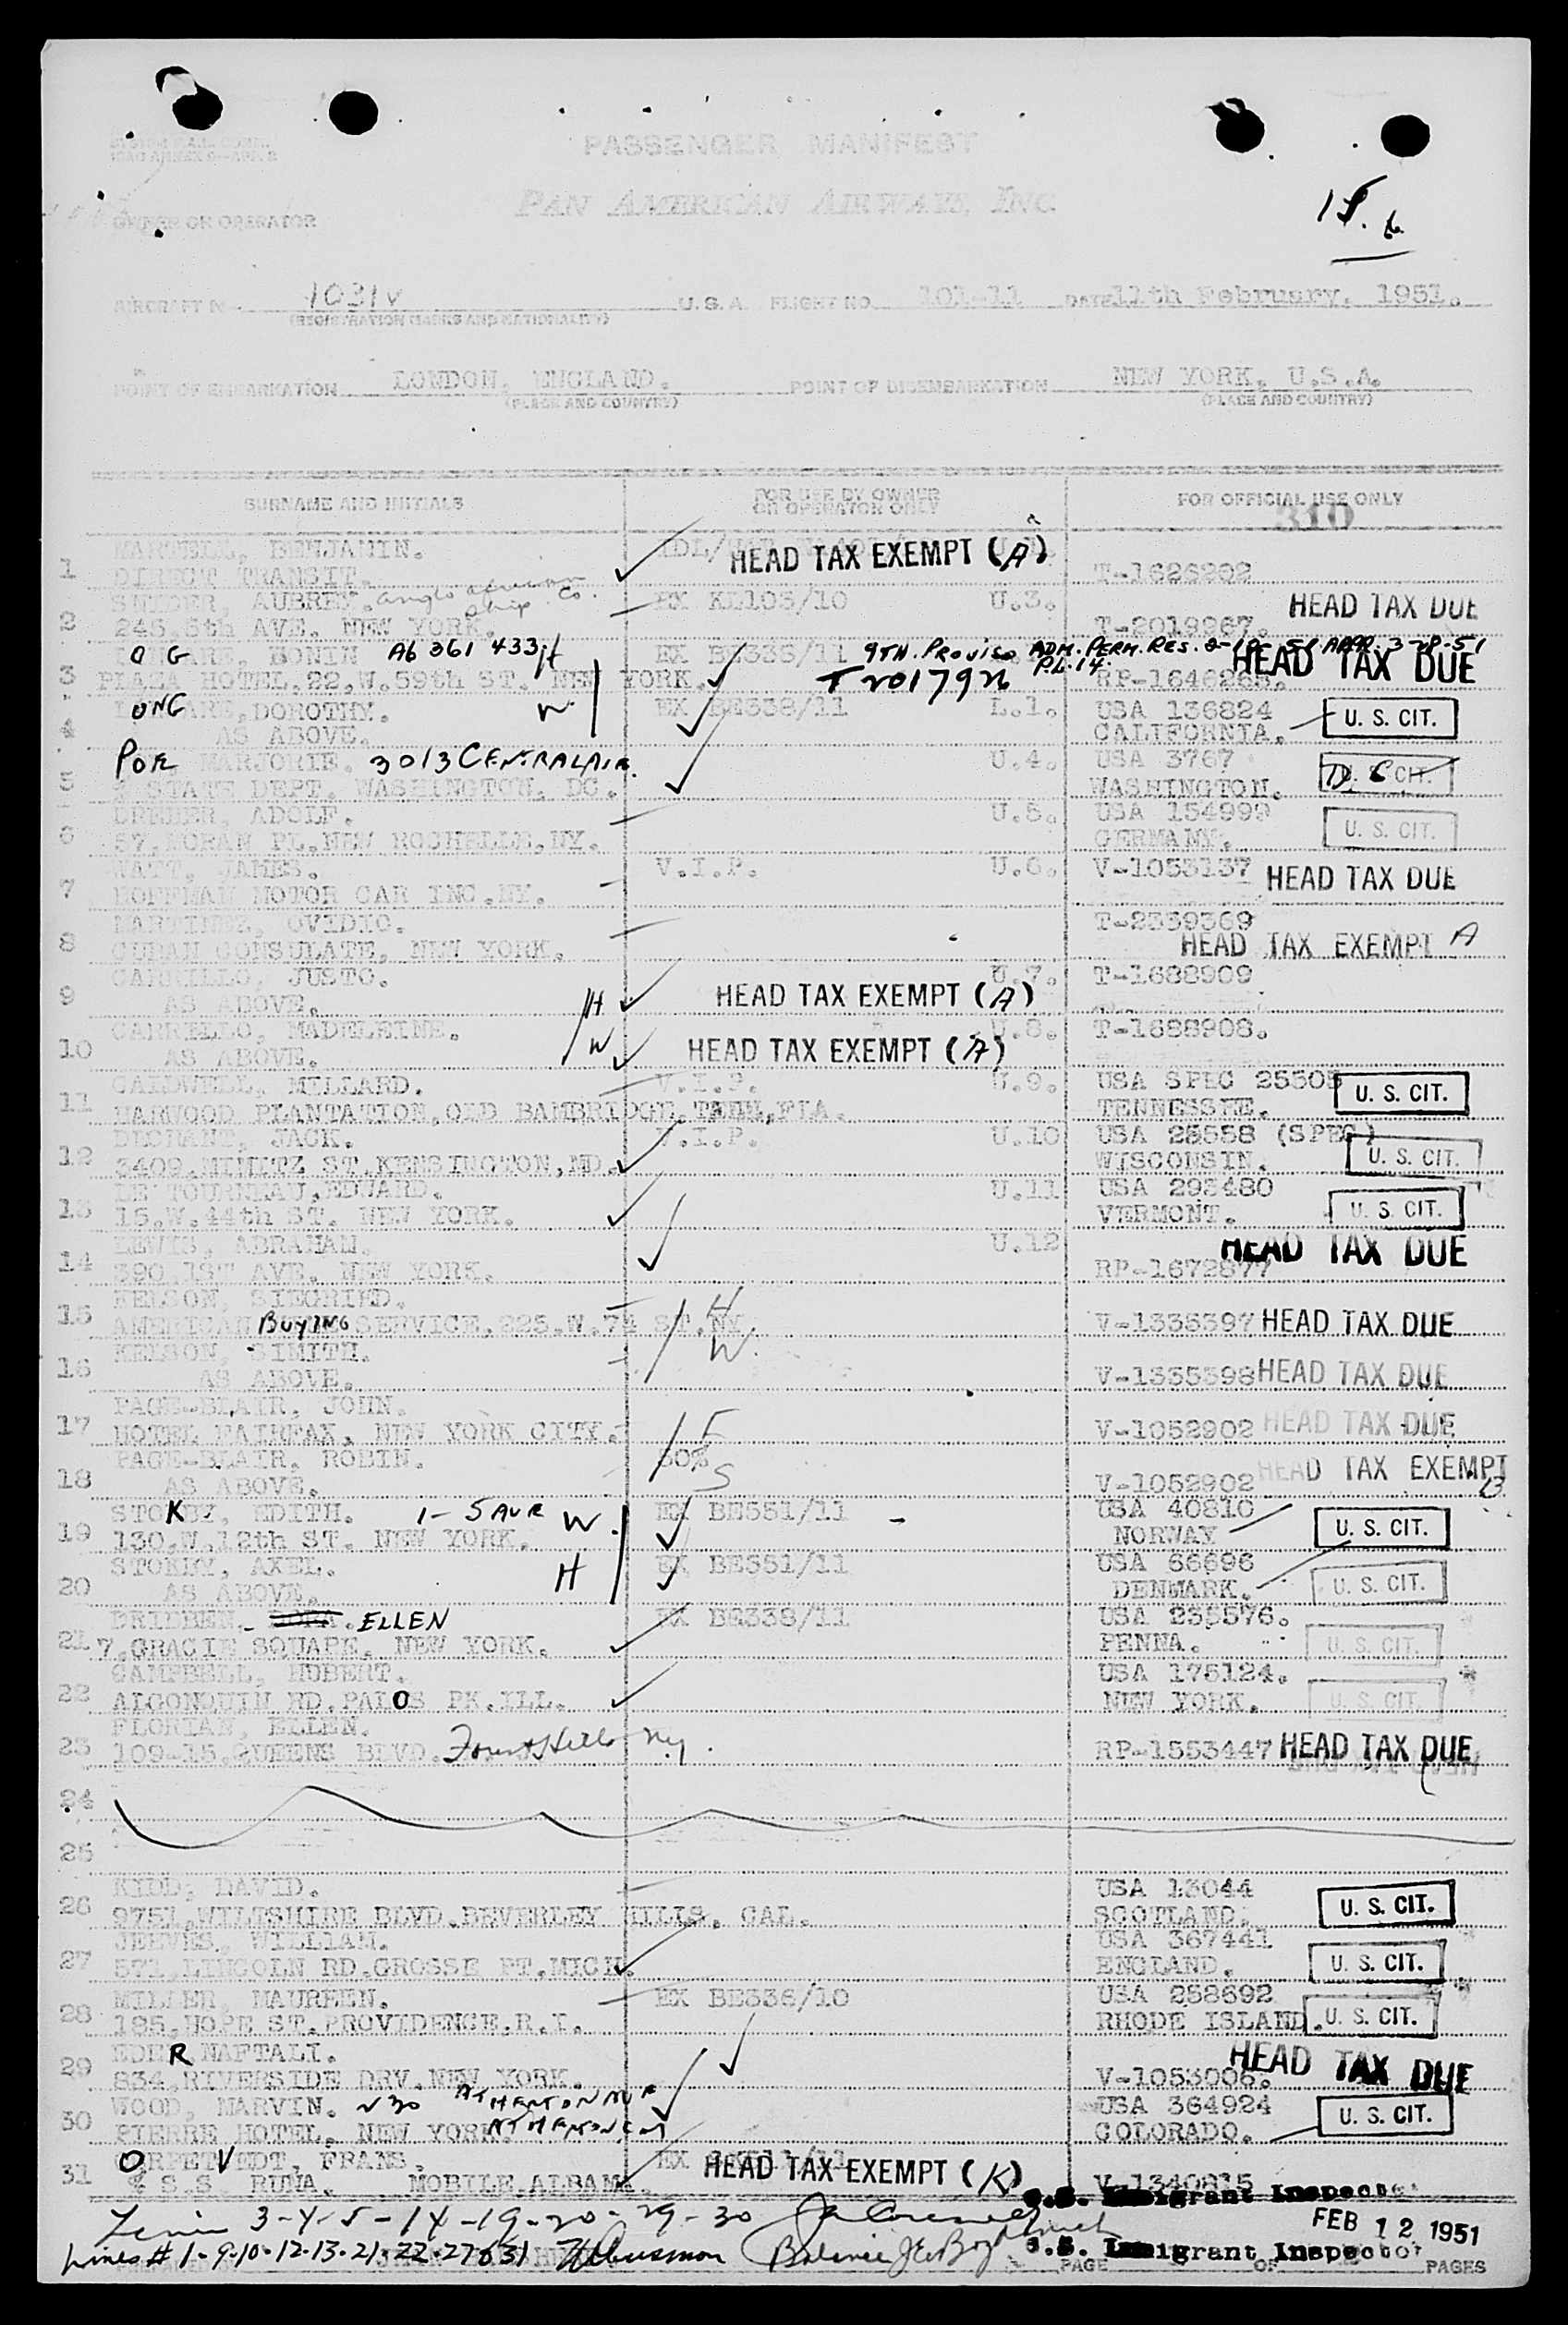 PASSENGER MANIFEST
PAN AMERICAN AIRWAYS, INC
OWNER OR OPERATOR
AIRCRAFT No. 1031V U.S.A. FLIGHT NO. 101-11 DATE 11th February, 1951.
(REGISTRATION MARKS AND NATIONALITY)
POINT OF EMBARKATION LONDON, ENGLAND. POINT OF DISEMBARKATION NEW YORK, U.S.A.
(PLACE AND COUNTRY) (PLACE AND COUNTRY)
SURNAME AND INITIALS FOR USE BY OWNER OR OPERATOR ONLY FOR OFFICIAL USE ONLY
310
BENJAMIN. HEAD TAX EXEMPT (A)
1 DIRECT TRANSIT. T-1626202
AUBREY. EX KL103/10 U.3. HEAD TAX DUE
2 245.5th AVE. NEW YORK. T-2019967.
BONIN A6 361 433 H EX 9TH. PROVISO ADM. PERM. RES.
P.L.14.
3 PLAZA HOTEL.22.W.59th ST. NEW YORK. T2017926 RP-1646265. HEAD TAX DUE
DOROTHY. W EX BE338/11 L.1. USA 136824
4 AS ABOVE. CALIFORNIA. U. S. CIT.
POR MARJORIE. 3013 U.4. USA 3767
5 STATE DEPT. WASHINGTON. DC. WASHINGTON. U. S. CIT.
ADOLF. U.5. USA 154999
6 57.MORAN PL.NEW ROCHELLE.NY. GERMANY. U. S. CIT.
WATT, JAMES. V.I.P. U.6. V-1053137 HEAD TAX DUE
7 HOFFMAN MOTOR CAR INC.NY.
MARTINEZ, OVIDIO. T-2339369
8 CUBAN CONSULATE, NEW YORK. HEAD TAX EXEMPT A
CARRILLO, JUSTO. U.7. T-1688909
9 AS ABOVE. H HEAD TAX EXEMPT (A)
CARRILLO, MADELEINE. U.8. T-1688908.
10 AS ABOVE. W HEAD TAX EXEMPT (A)
CALDWELL, MILLARD. V.I.P. U.9. USA SPEC 25305
11 HARWOOD PLANTATION,OLD BAMBRIDGE. FLA. TENNESSEE. U. S. CIT.
DECHANT, JACK. V.I.P. U.10 USA 25558 (SPEC)
12 3409.NIMITZ ST.KENSINGTON,MD. WISCONSIN. U. S. CIT.
LE TOURNEAU,EDUARD. U.11 USA 293480
13 15.W.44th ST. NEW YORK. VERMONT. U. S. CIT.
LEWIS, ABRAHAM. U.12 HEAD TAX DUE
14 390.1ST AVE. NEW YORK. RP-1672877
SIEGRIED. H
15 AMERICAN BUYING SERVICE.225.W.74 ST.NY. V-1335397 HEAD TAX DUE
SIMITH. W.
16 AS ABOVE. V-1335398 HEAD TAX DUE
PAGE-BLAIR, JOHN. F
17 HOTEL FAIRFAX, NEW YORK CITY. V-1052902 HEAD TAX DUE
PAGE-BLAIR, ROBIN. 50% S
18 AS ABOVE. V-1052902 HEAD TAX EXEMPT
STOKBY, EDITH. W. EX BE551/11 USA 40810
19 130.W.12th ST. NEW YORK. NORWAY U. S. CIT.
STOKBY, AXEL. H EX BE551/11 USA 66696
20 AS ABOVE. DENMARK. U. S. CIT.
DRIEBEN. ELLEN EX BE338/11 USA 235576.
21 7.GRACIE SQUARE. NEW YORK. PENNA. U. S. CIT.
CAMPBELL, HUBERT. USA 175124.
22 ALGONQUIN RD.PALOS PK.ILL. NEW YORK. U. S. CIT.
FLORIAN, ELLEN.
23 109-15.QUEENS BLVD. Forest Hills Ny. RP-1553447 HEAD TAX DUE
24
25
KIDD, DAVID. USA 13044
26 9751.WILTSHIRE BLVD.BEVERLEY HILLS. CAL. SCOTLAND. U. S. CIT.
JEEVES, WILLIAM. USA 367441
27 571.LINCOLN RD.GROSSE PT.MICH. ENGLAND. U. S. CIT.
MILLER, MAUREEN. EX BE336/10 USA 258692
28 195.HOPE ST.PROVIDENCE.R.I. RHODE ISLAND. U. S. CIT.
EDER NAFTALI. HEAD TAX DUE
29 834.RIVERSIDE DRV.NEW YORK. V-1053006.
WOOD, MARVIN. USA 364924
30 PIERRE HOTEL. NEW YORK. COLORADO. U. S. CIT.
FRANS. EX
31 % S.S. RUNA. MOBILE.ALBAMA. HEAD TAX EXEMPT (K) V-1340815
3-4-5-14-19-20-29-30 U.S. Immigrant Inspector
FEB 12 1951
Lines # 1-9-10-12-13-21-22-27&31 U.S. Immigrant Inspector
PAGE OF PAGES